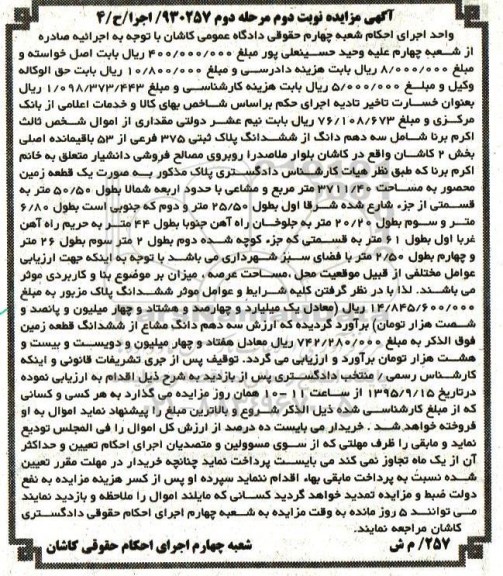 آگهی مزایده نوبت دوم مرحله دوم ۹۳۰۲۵۷/ اجرا/ح/۴
واحد اجرای احکام شعبه چهارم حقوقی دادگاه عمومی کاشان با توجه به اجرائیه صادره
از شعبه چهارم علیه وحید حسینعلی پور مبلغ ۴۰۰/۰۰۰/۰۰۰ ریال بابت اصل خواسته و
مبلغ ۸/۰۰۰/۰۰۰ ریال بابت هزینه دادرسی و مبلغ ۱۰/۸۰۰/۰۰۰ ریال بابت حق الوکاله
وکیل و مبلغ ۵/۰۰۰/۰۰۰ ریال بابت هزینه کارشناسی و مبلغ ۱/۰۹۸/۳۷۳/۴۴۳ ریال
بعنوان خسارت تاخیر تادیه اجرای حکم براساس شاخص بهای کالا و خدمات اعلامی از بانک
مرکزی و مبلغ ۷۶/۱۰۸/۶۷۳ ریال بابت نیم عشر دولتی مقداری از اموال شخص ثالث
اکرم برنا شامل سه دهم دانگ از ششدانگ پلاک ثبتی ۳۷۵ فرعی از ۵۳ باقیمانده اصلی
بخش ۲ کاشان واقع در کاشان بلوار ملاصدرا روبروی مصالح فروشی دانشیار متعلق به خانم
اکرم برنا که طبق نظر هیات کارشناس دادگستری پلاک مذکور به صورت یک قطعه زمین
محصور به مساحت ۳۷۱۱/۴۰ متر مربع و مشاعی با حدود اربعه شمالا بطول ۵۰/۵۰ متر به
قسمتی از جزء شارع شده شرقا اول بطول ۲۵/۵۰ متر و دوم که جنوبی است بطول ۶/۸۰
متر و سوم بطول ۲۰/۲۰ متر به جلوخان راه آهن جنوبا بطول ۴۴ متر به حریم راه آهن
غربا اول بطول ۶۱ متر به قسمتی که جزء کوچه شده دوم بطول ۲ متر سوم بطول ۲۶ متر
و چهارم بطول ۲/۵۰ متر با فضای سبز شهرداری می باشد با توجه به اینکه جهت ارزیابی
عوامل مختلفی از قبیل موقعیت محل ،مساحت عرصه ، میزان بر موضوع بنا و کاربردی موثر
می باشند. لذا با در نظر گرفتن کلیه شرایط و عوامل موثر ششدانگ پلاک مزبور به مبلغ
۱۴/۸۴۵/۶۰۰/۰۰۰ ریال (معادل یک میلیارد و چهارصد و هشتاد و چهار میلیون و پانصد و
شصت هزار تومان) برآورد گردیده که ارزش سه دهم دانگ مشاع از ششدانگ قطعه زمین
فوق الذکر به مبلغ ۷۴۲/۲۸۰/۰۰۰ ریال معادل هفتاد و چهار میلیون و دویست و بیست و
هشت هزار تومان برآورد و ارزیابی می گردد. توقیف پس از جری تشریفات قانونی و اینکه
کارشناس رسمی / منتخب دادگستری پس از بازدید به شرح ذیل اقدام به ارزیابی نموده
درتاریخ ۱۳۹۵/۹/۱۵ از ساعت ۱۱-۱۰ همان روز مزایده می گذارد به هر کسی و کسانی
که از مبلغ کارشناسی شده ذیل الذکر شروع و بالاترین مبلغ را پیشنهاد نماید اموال به او
فروخته خواهد شد . خریدار می بایست ده درصد از ارزش کل اموال را فی المجلس تودیع
نماید و مابقی را ظرف مهلتی که از سوی مسوولین و متصدیان اجرای احکام تعیین و حداکثر
آن از یک ماه تجاوز نمی کند می بایست پرداخت نماید چنانچه خریدار در مهلت مقرر تعیین
شده نسبت به پرداخت مابقی بهاء اقدام ننماید سپرده او پس از کسر هزینه مزایده به نفع
دولت ضبط و مزایده تمدید خواهد گردید کسانی که مایلند اموال را ملاحظه و بازدید نمایند
می توانند ۵ روز مانده به وقت مزایده به شعبه چهارم اجرای احکام حقوقی دادگستری
کاشان مراجعه نمایند.
شعبه چهارم اجرای احکام حقوقی کاشان
۲۵۷/ م ش